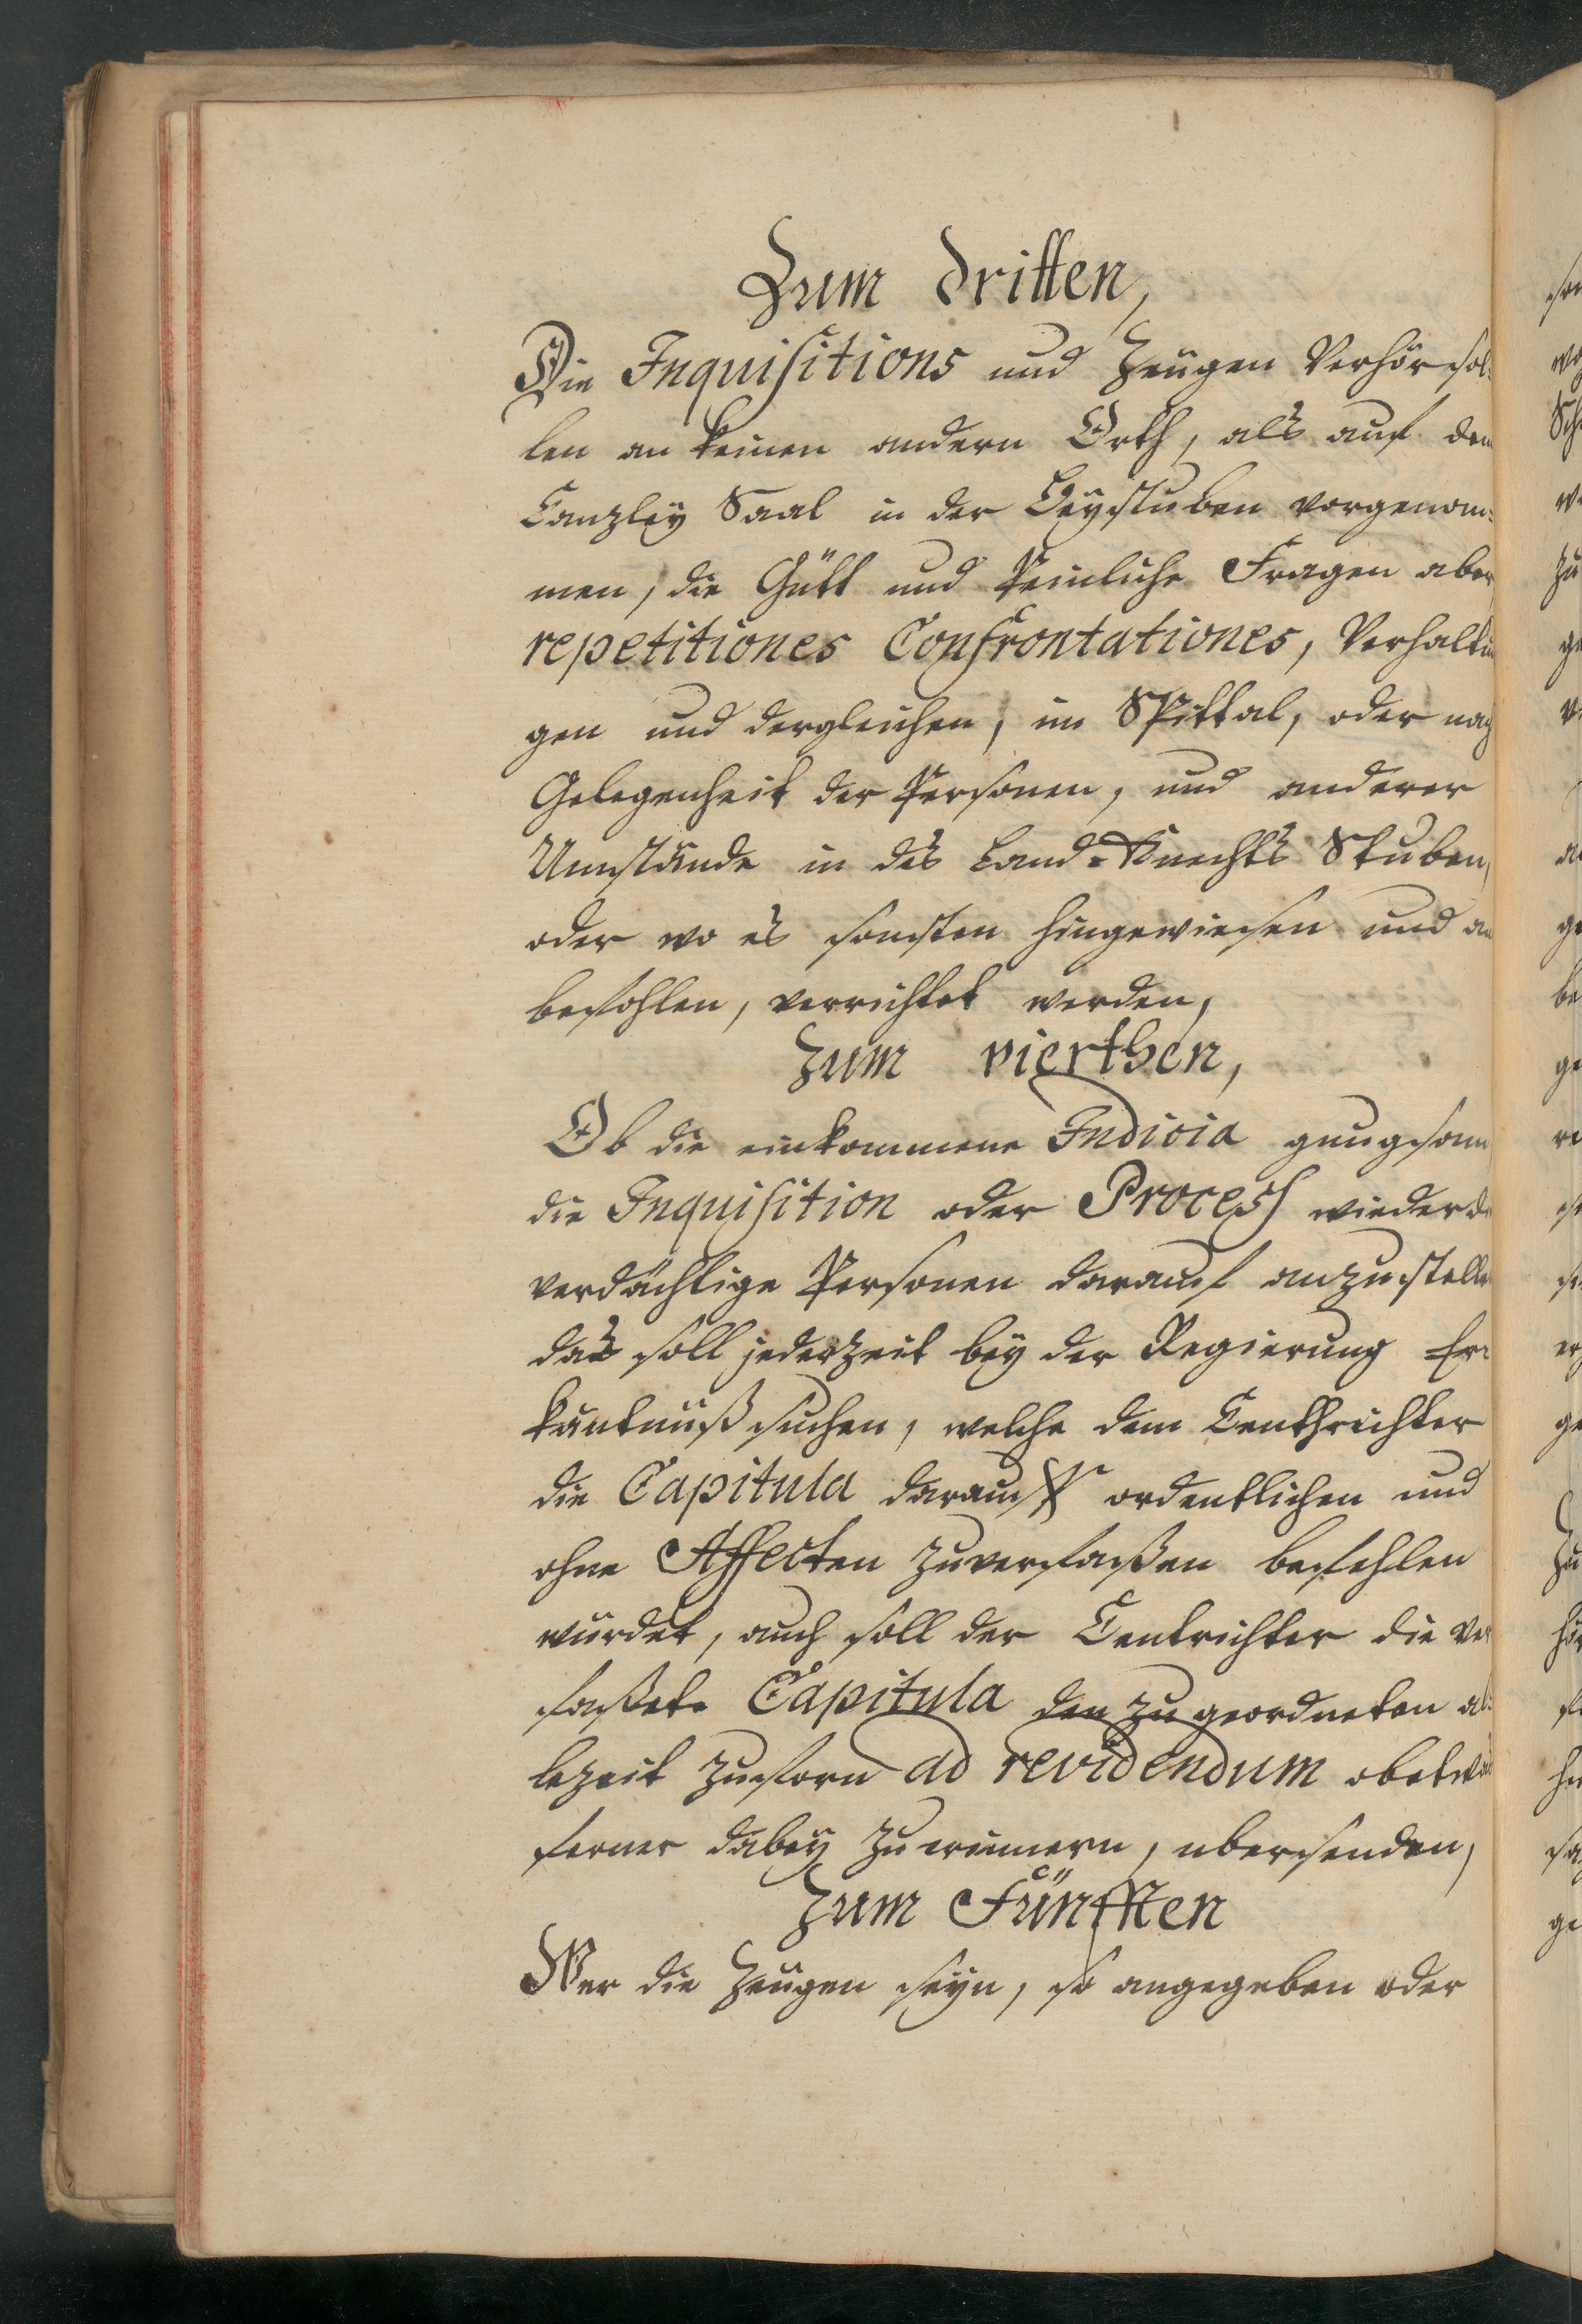 Zum dritten,
Die Inquisitions und Zeugen Verhör sol-
len an keinen andern Orth, als auf dem
Canzley Saal in der Leystuben vorgenom-
men, die Gütt und Peinliche Fragen aber
repetitiones Confrontationes, Verhaltun
gen und dergleichen, im Spittal, oder nach
Gelegenheit der Personen, und anderer
Umstände in des Land-Knechts Stuben,
oder wo es sonsten hingewiesen und an
befohlen, verrichtet werden,
Zum vierthen,
Ob die einkommene Indicia gnugsam
die Inquisition oder Process wieder die
verdächtige Personen darauf anzustellen
das soll jederzeit bey der Regierung Er-
käntnüß suchen, welche dem Centhrichter
die Capitula darauff ordentlichen und
ohne Affecten zuverfaßen befehlen
würdet, auch soll der Centrichter die ver
faßete Capitula den zu geordneten al-
lezeit zuforn ad revidendum ob etwas
ferner dabey zu erinnern, ubersenden,
Zum Fünfften
Wer die Zeugen seyn, so angegeben oder